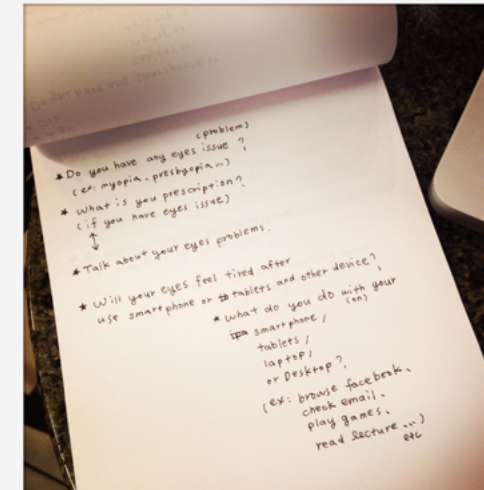 (problem)
* Do you have any eyes issue ?
(ex: myopia, presbyopia...)
* What is you prescription?
(if you have eyes issue)
* Talk about your eyes problems.
* Will your eyes feel tired after
use smartphone or tablets and other device?
* What do you do with your
(on)
smartphone /
tablets /
laptop /
or Desktop ?
(ex: browse facebook.
check email.
play games.
read lecture ...)
etc